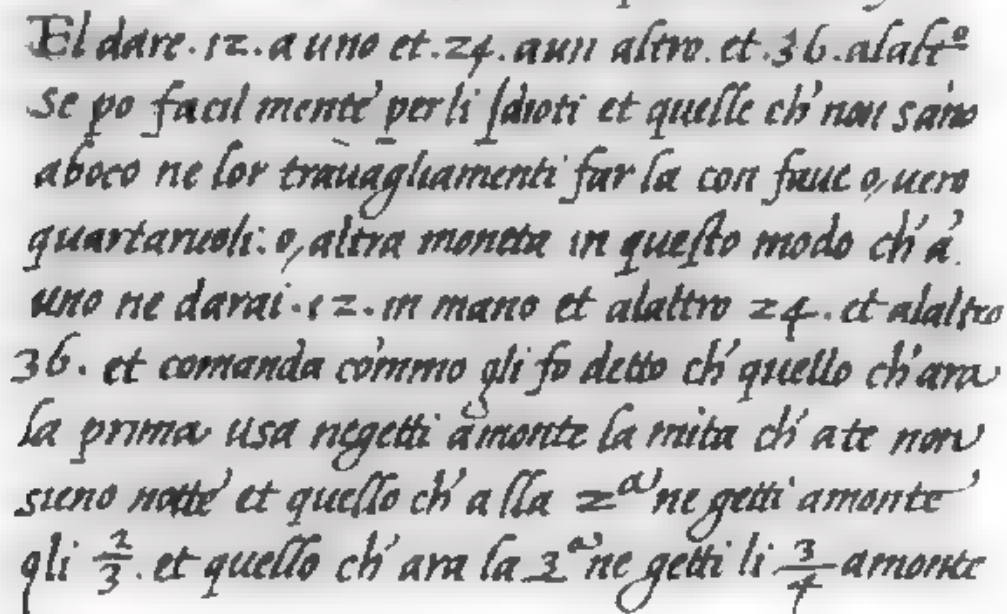 El dare .12. a uno et .24. aun altro. et .36. alalt°
Se po facil mente per li Idioti et quelle ch' non sano
aboco ne lor travagliamenti far la con fave o, vero
quartaruoli: o, altra moneta in questo modo ch' a
uno ne darai .12. in mano et alaltro 24. et alaltro
36. et comanda commo gli fo detto ch' quello ch' ara
la prima usa negetti amonte la mita ch' ate non
sieno notte et quello ch' a lla 2ª ne getti amonte
gli 2/3. et quello ch' ara la 3ª ne getti li 3/4 amonte